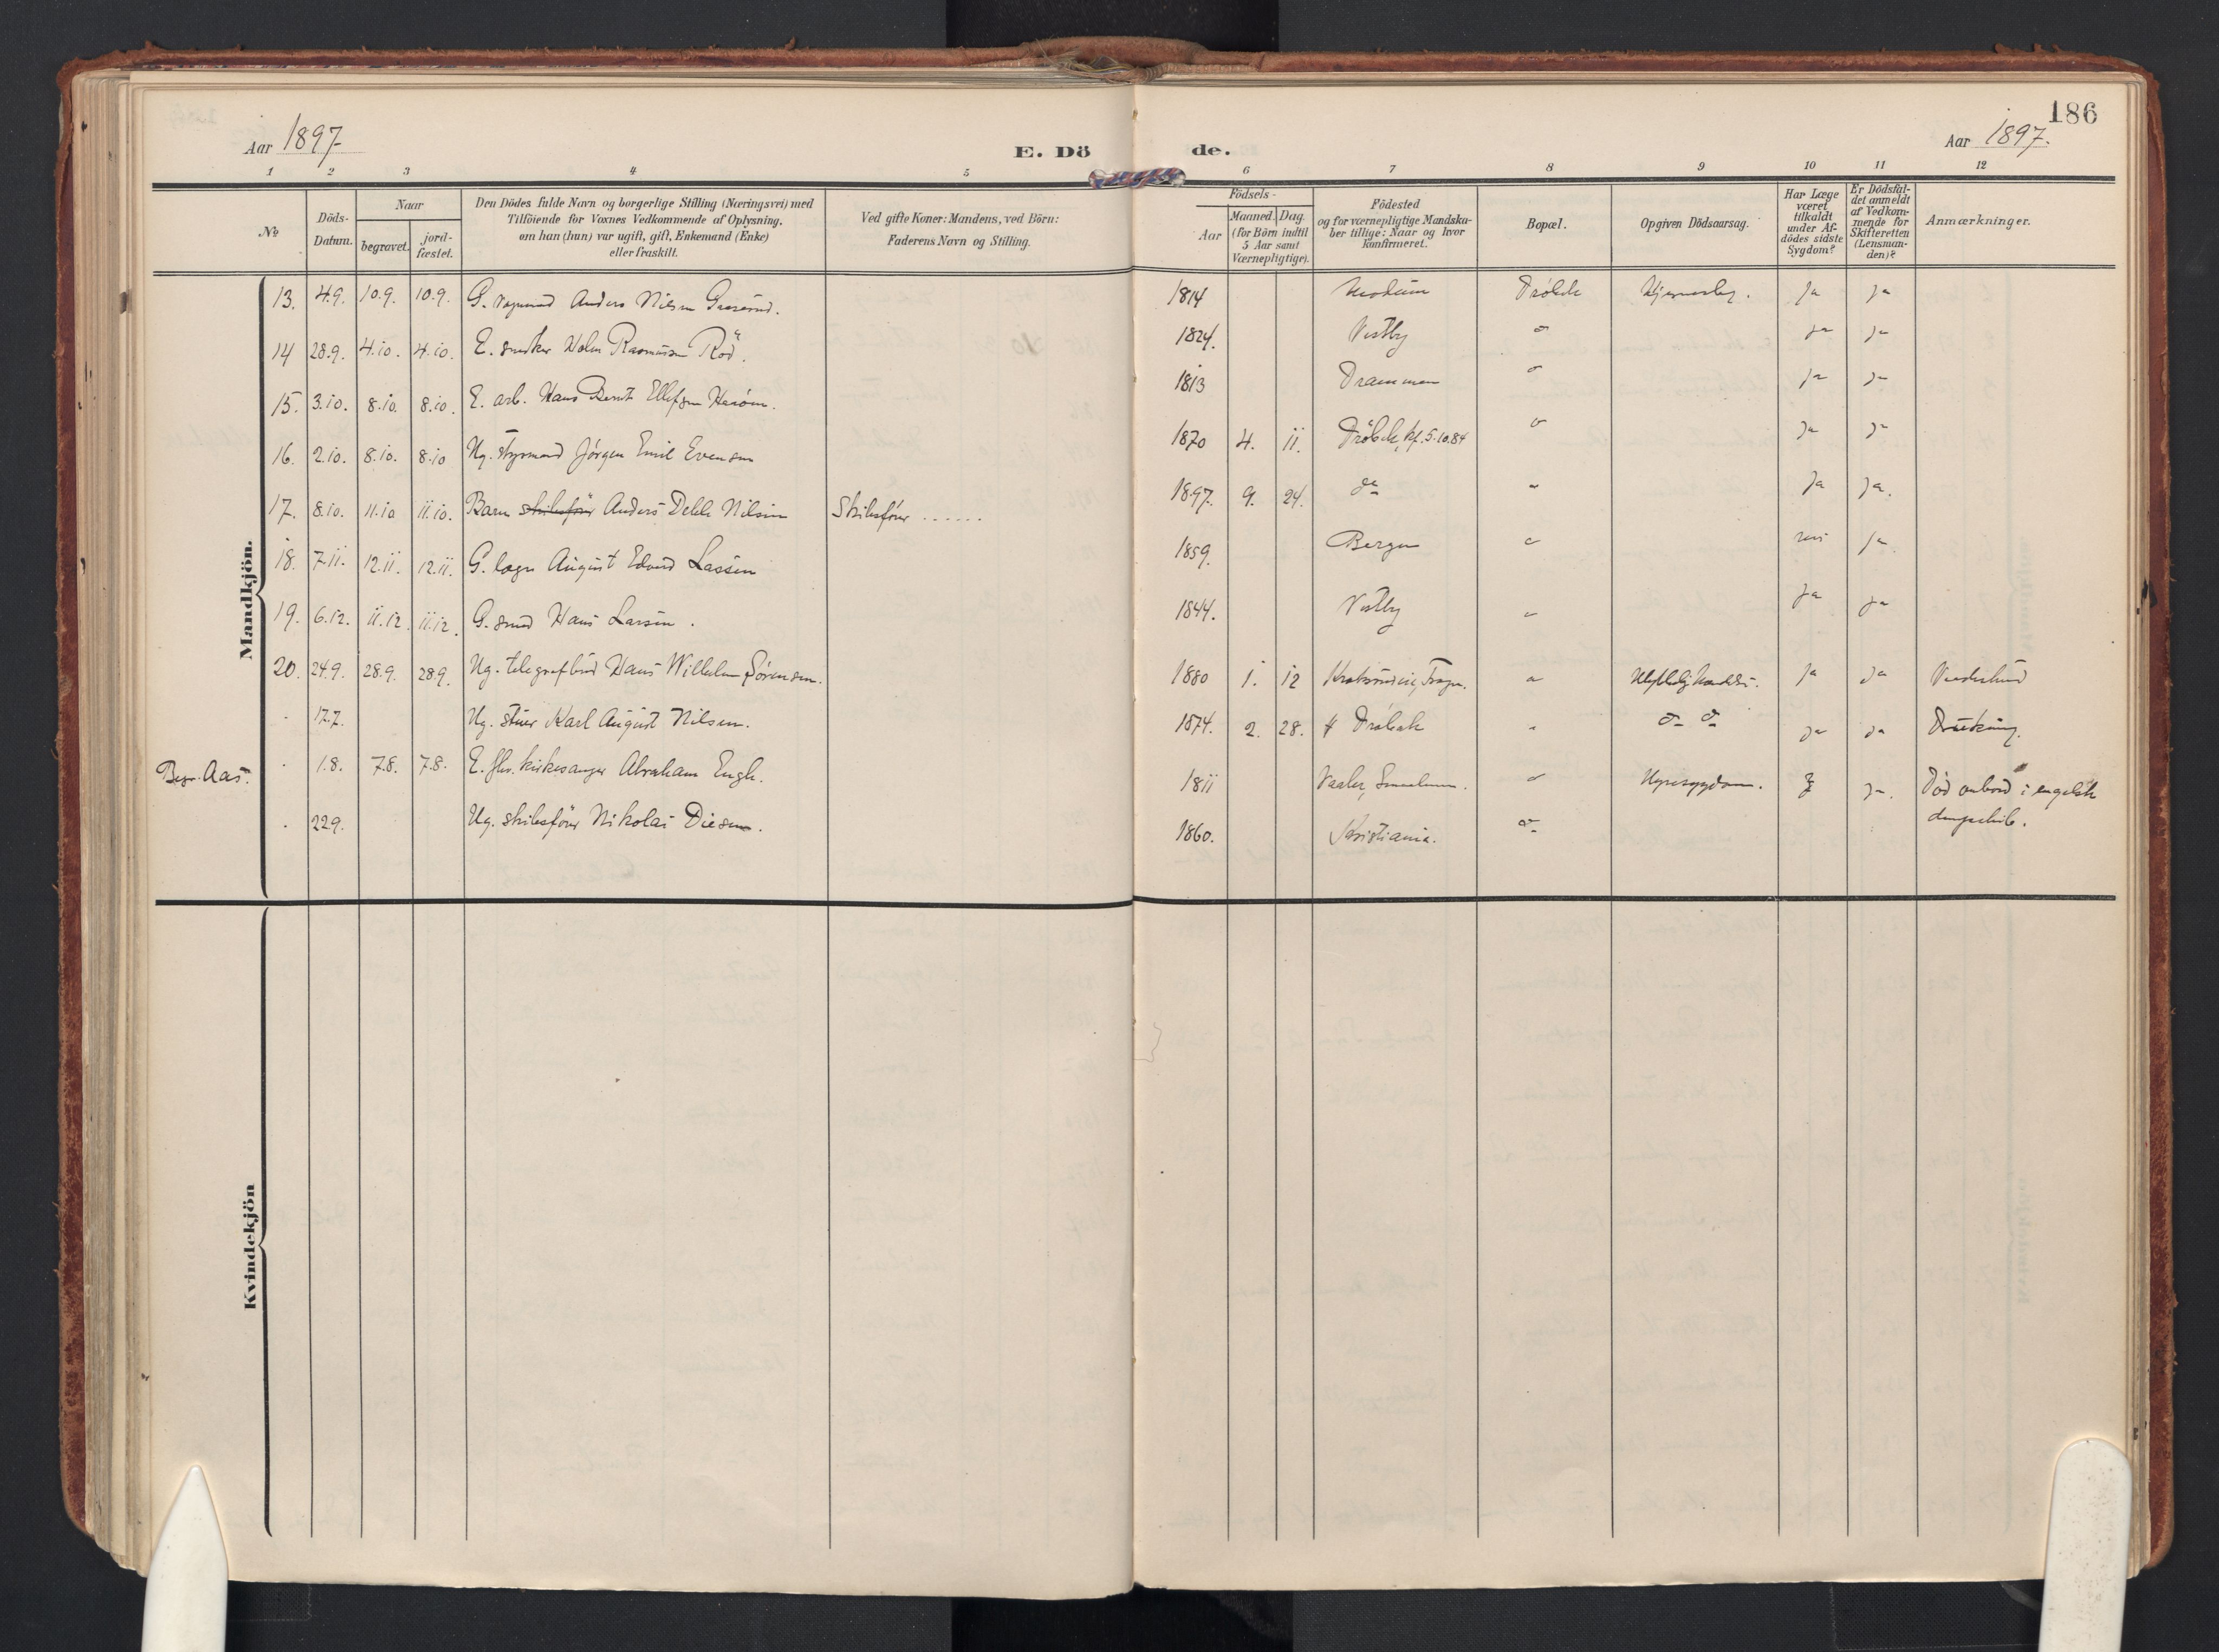 186
Aar 1897.
E. Dö
de.
Aar 1897.
1 2 3 4 5 6 7 8 9 10 11 12
No
Döds-Datum.
Naar
begravet.
jord-fæstet.
Den Dödes fulde Navn og borgerlige Stilling (Næringsvei) med
Tilföiende for Voxnes Vedkommende af Oplysning,
om han (hun) var ugift, gift, Enkemand (Enke)
eller fraskilt.
Ved gifte Koner: Mandens, ved Börn:
Faderens Navn og Stilling.
Födsels-
Aar
Maaned. Dag.
(for Börn indtil
5 Aar samt
Værnepligtige).
Födested
og for værnepligtige Mandska-
ber tillige: Naar og hvor
konfirmeret.
Bopæl.
Opgiven Dödsaarsag.
Har Læge
været
tilkaldt
under Af-
dödes sidste
Sygdom?
Er Dödsfal-
det anmeldt
af Vedkom-
mende for
Skifteretten
(Lensman-
den)?
Anmærkninger.
Mandkjön.
13. 4.9. 10.9. 10.9. G. Anders Nilsen 1814 Modum Drøbak ja ja
14 28.9. 4.10. 4.10. E. snedker Rasmussen Röd. 1824. Vestby " ja ja
15. 3.10. 8.10. 8.10. E. arb. Hans Bernt Ellefsen 1813 Drammen " ja ja
16. 2.10. 8.10. 8.10 Ug. styrmand Jörgen Emil Evensen 1870 4. 11. Drøbak, kf. 5.10.84 " ja ja
17. 8.10. 11.10 11.10. Barn skibsfører Anders Nilsen Skibsfører ...... 1897. 9. 24. do " ja ja.
18. 7.11. 12.11. 12.11. G. læge August Edvard Lassen 1859. Bergen " nei ja
19. 6.12. 11.12. 11.12. G. smed Hans Larsen. 1844. Vestby " ja ja
20. 24.9. 28.9. 28.9. Ug. telegrafbud Hans Wilhelm Sörensen. 1880 1. 12 " ja ja
" 17.7. Ug. Karl August Nilsen. 1874. 2. 28. Drøbak " do do ja ja Drukning.
Begr. Aas. " 1.8. 7.8. 7.8. E. fhv. kirkesanger Abraham Engh. 1811 Vaaler, " Nyresygdom. ja.
" 22.9. Ug. skibsfører Nikolai Diesen. 1860. Kristiania. do
Död ombord i engelsk
dampskib.
Kvindekjön